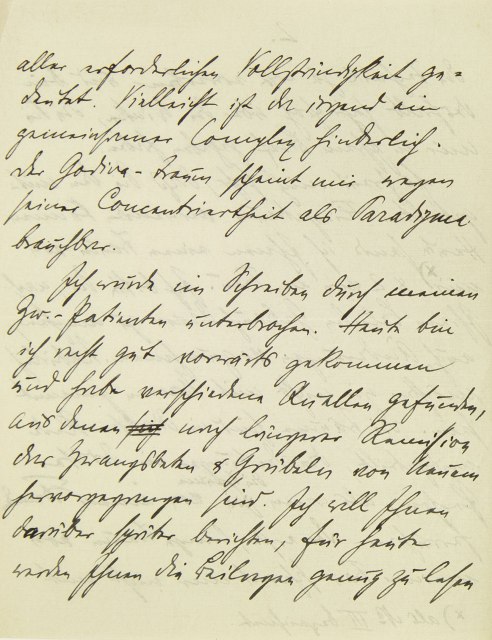 aller erforderlichen Vollständigkeit ge-
deutet. Vielleicht ist da irgend ein
gemeinsamer Complex hinderlich.
Der Godiva-Traum scheint mir wegen
seiner Concentriertheit als Paradigma
brauchbar.
Ich wurde im Schreiben durch meinen
Zw.-Patienten unterbrochen. Heute bin
ich recht gut vorwärts gekommen
und habe verschiedene Quellen gefunden,
aus denen nach längerer Remission
das Zwangsbeten & Grübeln von Neuem
hervorgegangen sind. Ich will Ihnen
darüber später berichten, für heute
werden Ihnen die Beilagen genug zu lesen